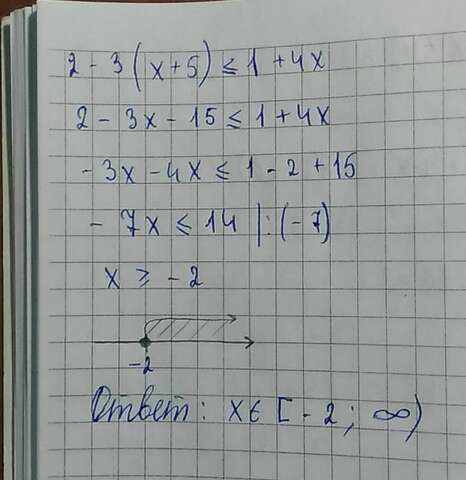 2 - 3(x+5) ≤ 1 + 4x
2 - 3x - 15 ≤ 1 + 4x
-3x - 4x ≤ 1 - 2 + 15
- 7x ≤ 14 |:(-7)
x ≥ -2
-2
Ответ: x∈[-2; ∞)